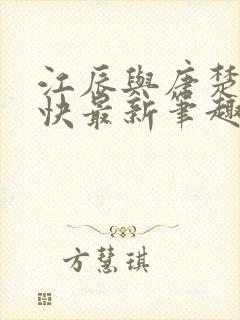 江辰與唐楚
快最新筆趣
方慧琪